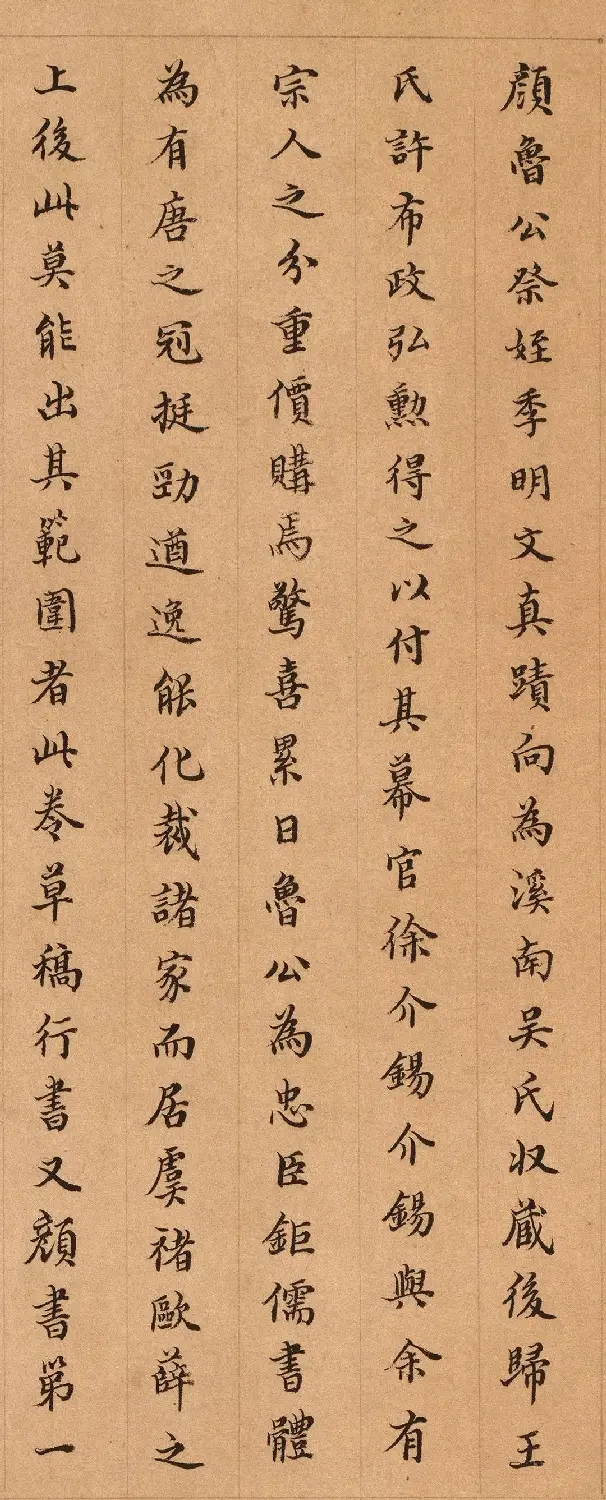 顔魯公祭姪季明文真蹟向為溪南吴氏収蔵後歸王
氏許布政弘勲得之以付其幕官徐介錫介錫與余有
宗人之分重價購焉驚喜累日魯公為忠臣鉅儒書體
為有唐之冠挺勁遒逸能化裁諸家而居虞褚歐薛之
上後此莫能出其範圍者此卷草稿行書又顔書第一